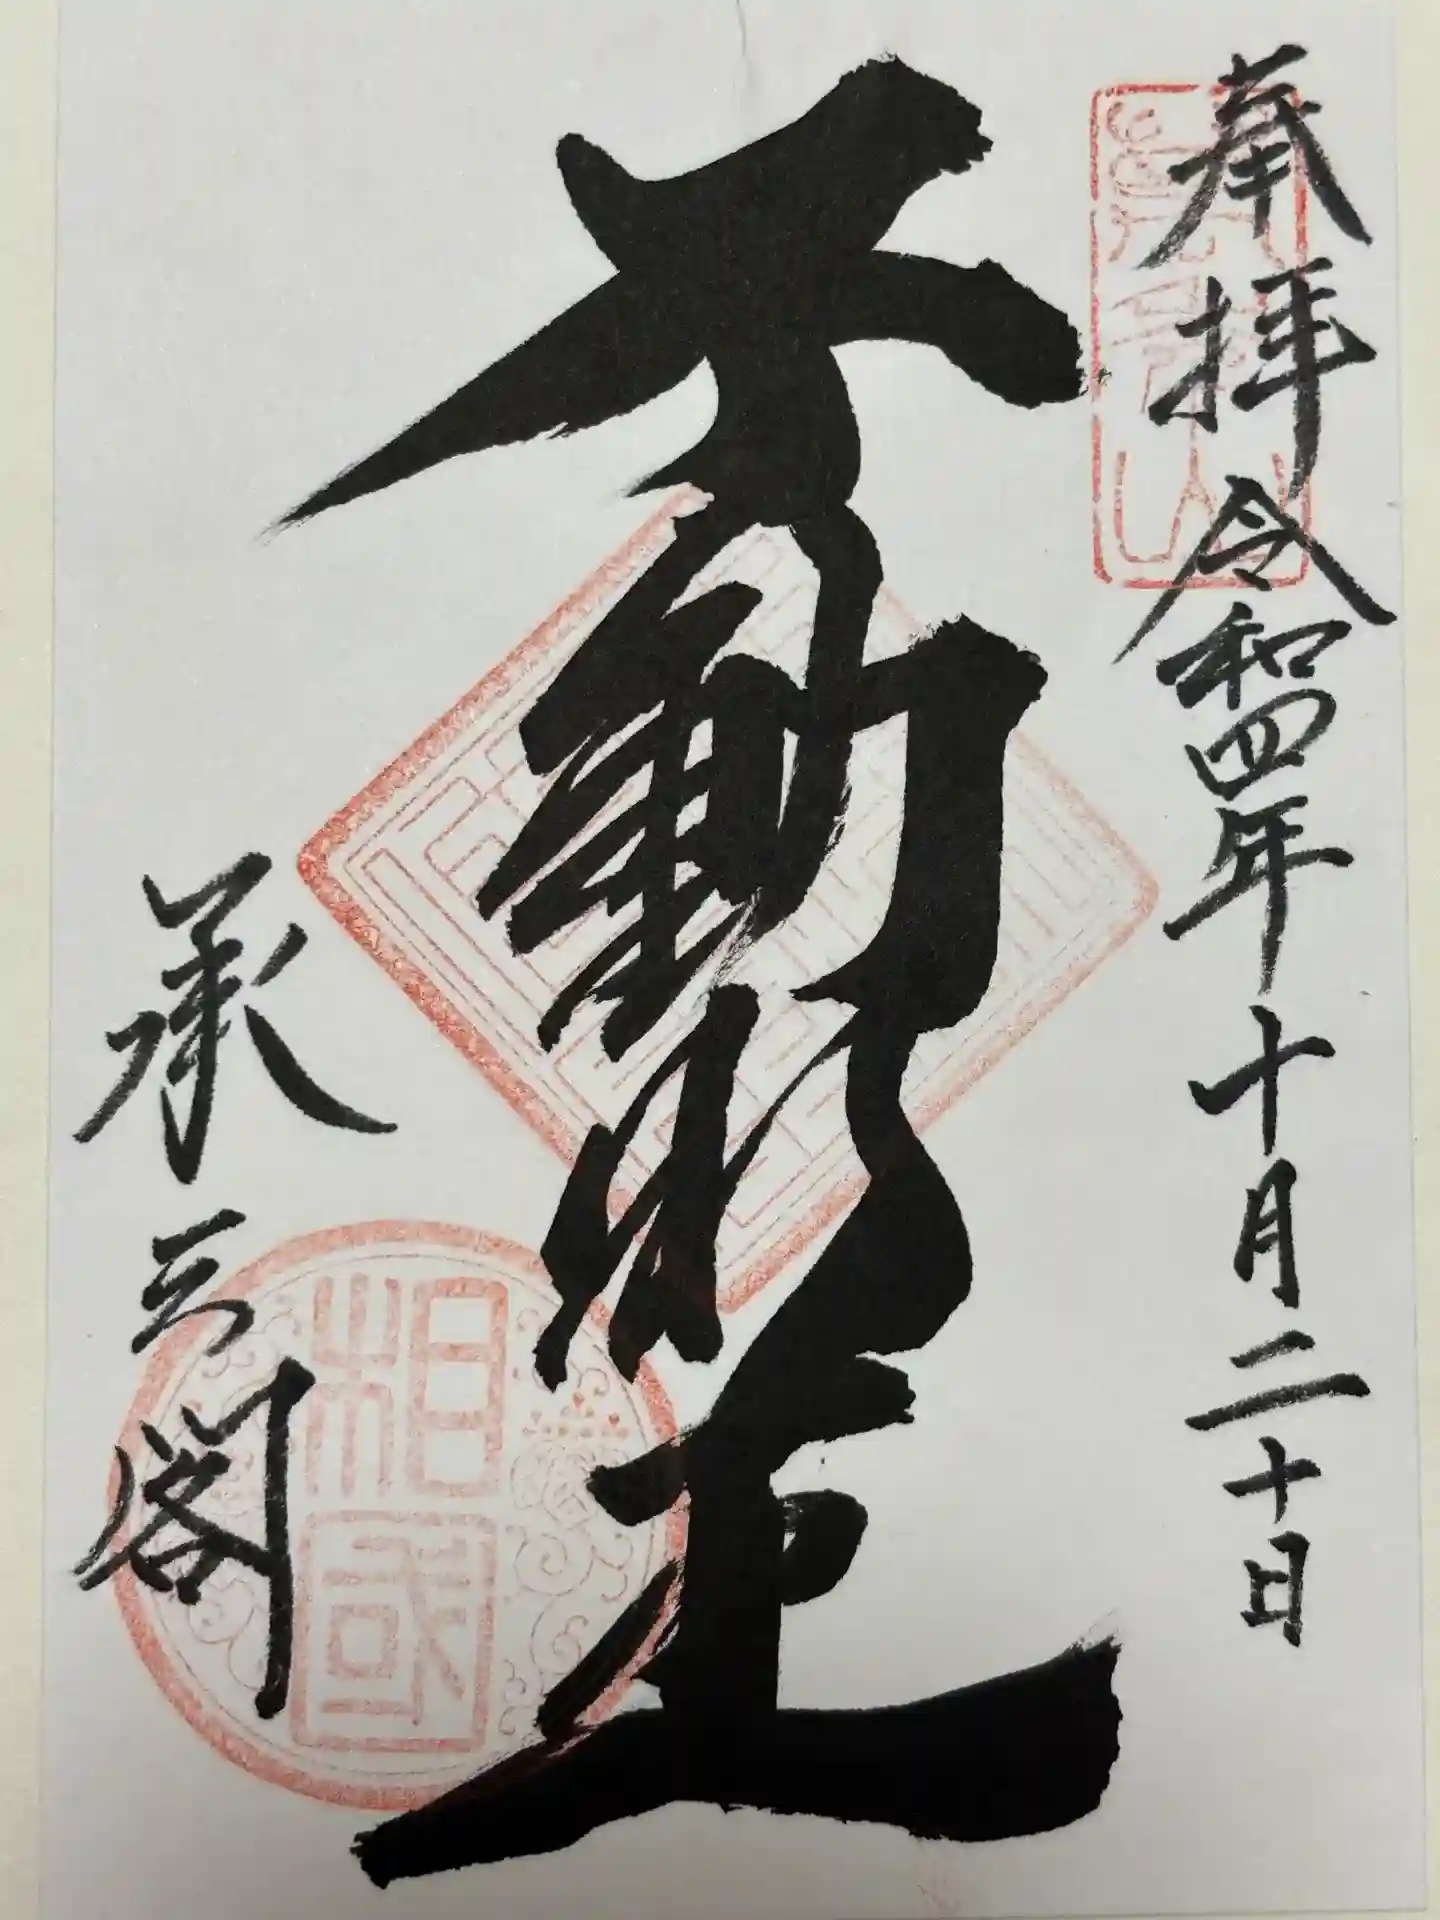 奉拝 令和四年十月二十日
不動明王
承天閣
相國